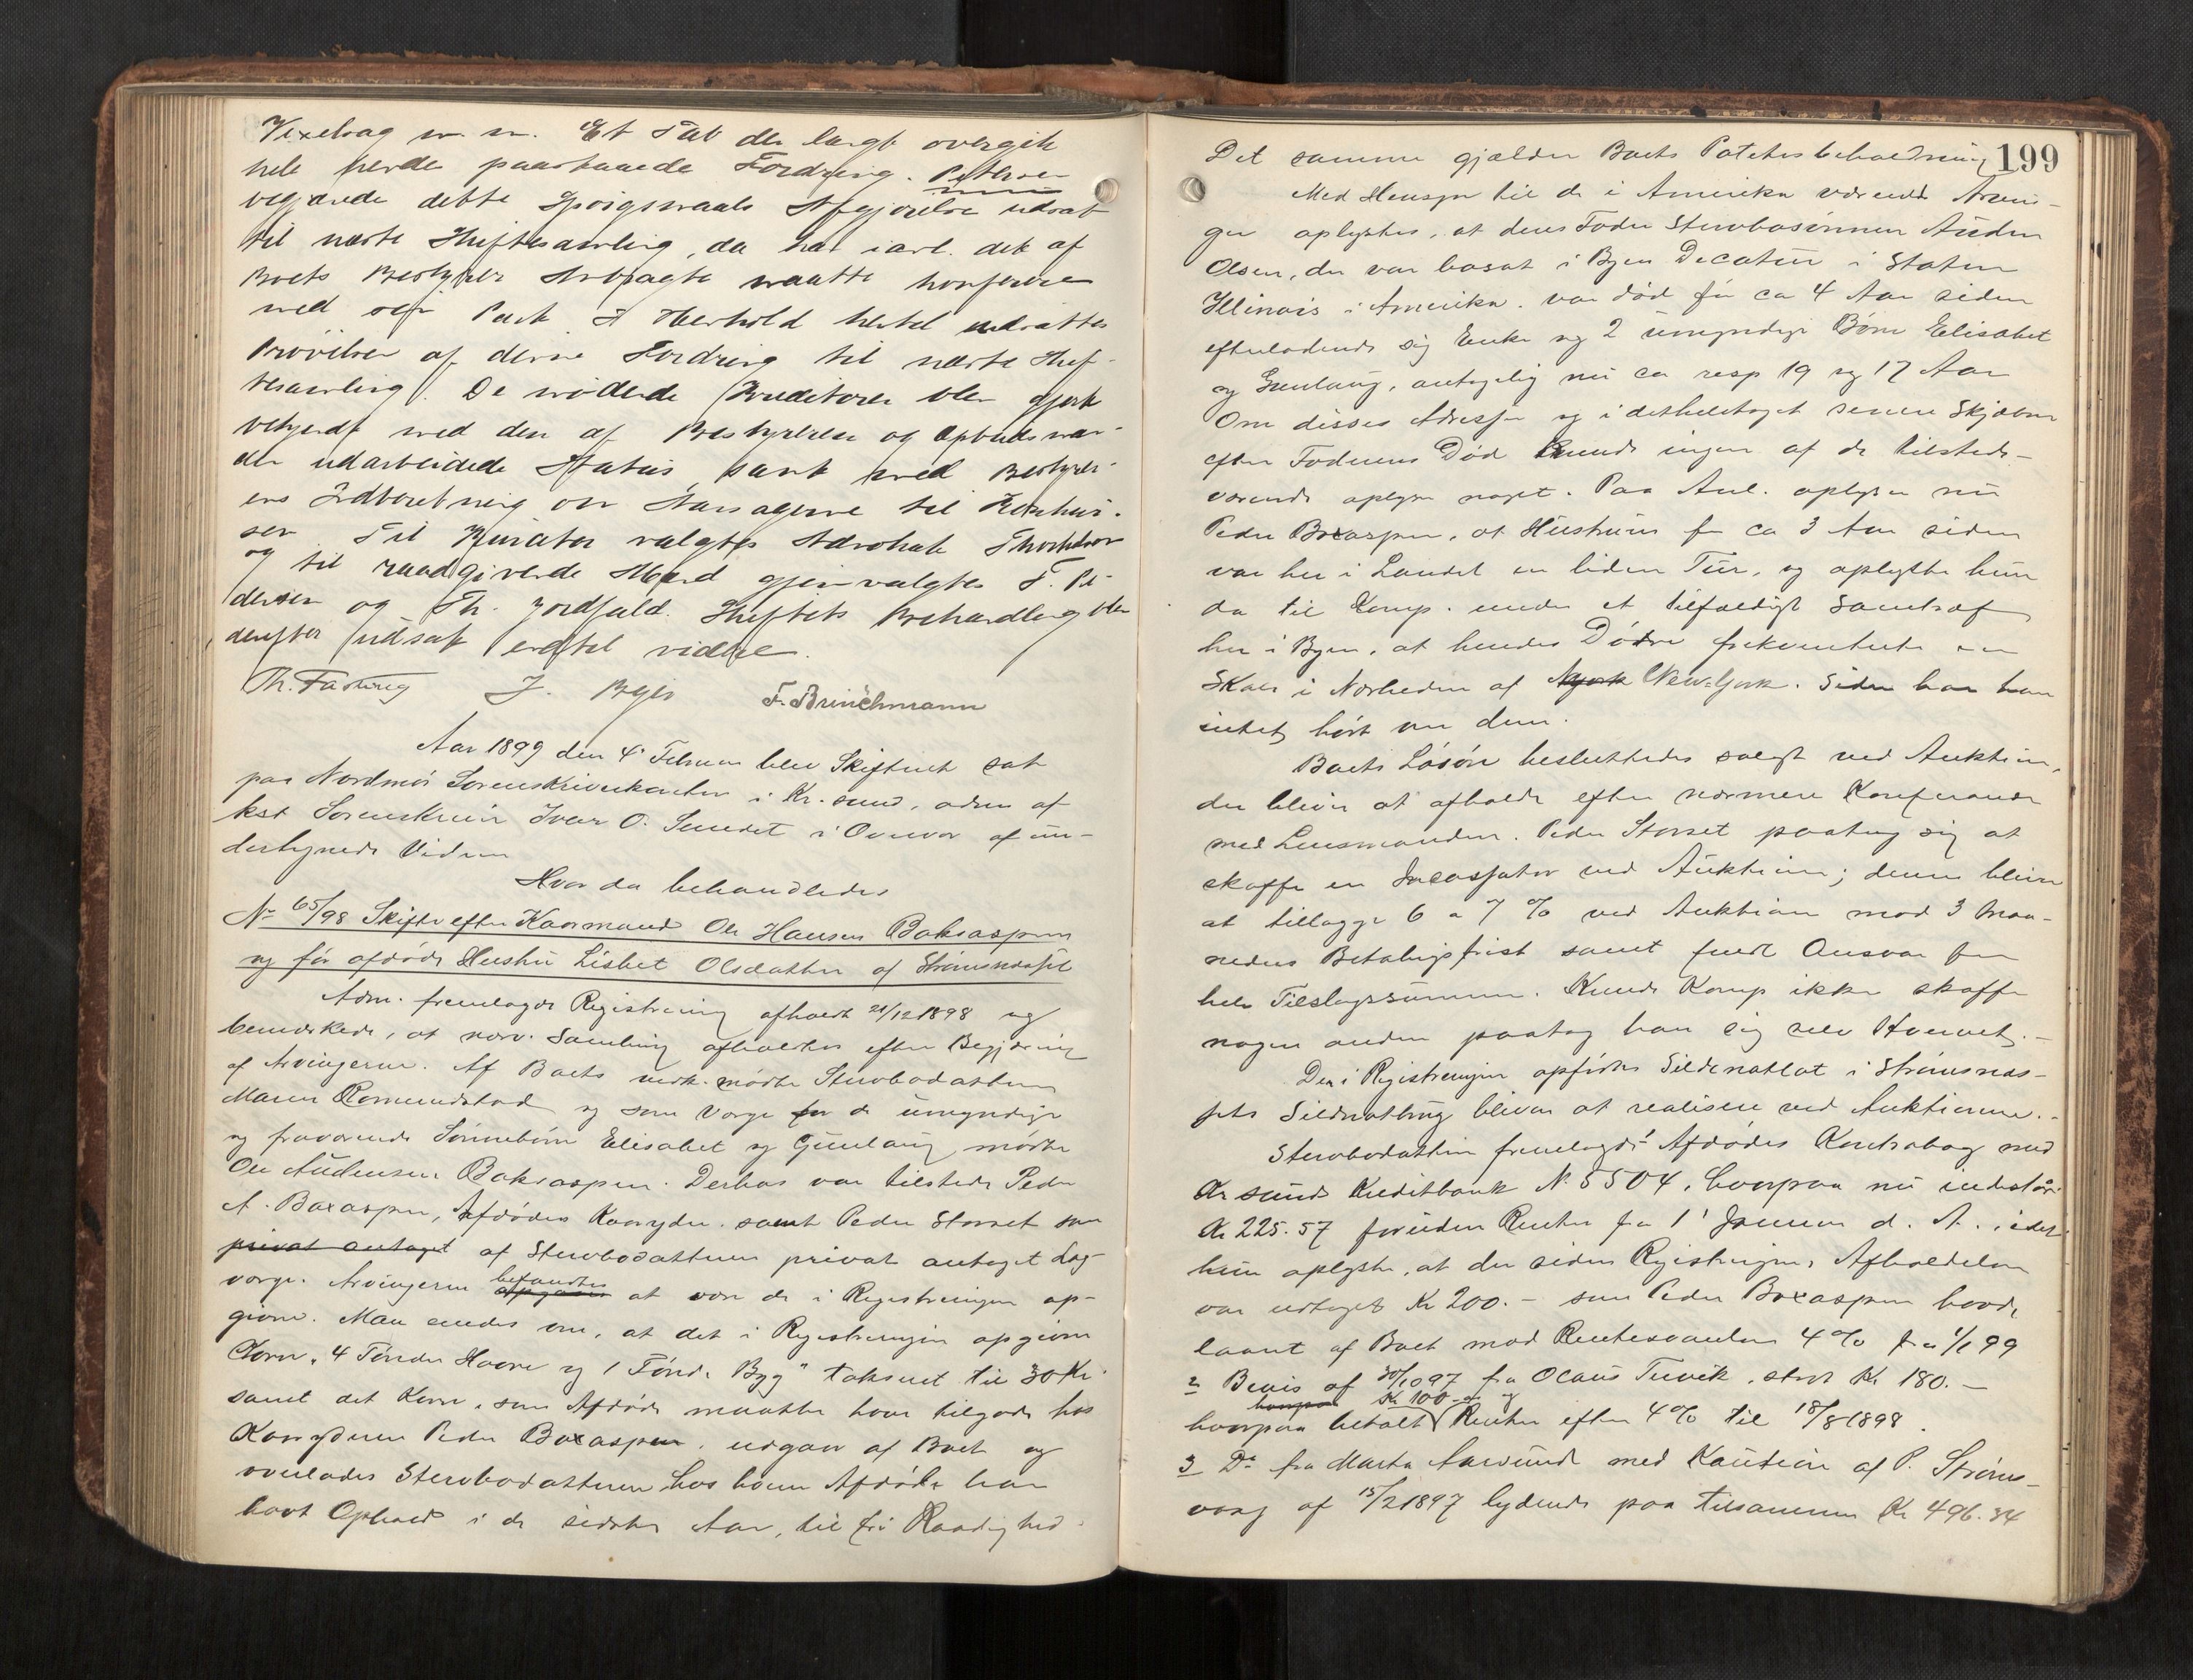 Vexelsag m. m. Et Tab der langt overgik
hele herde paastaaede Fordring. Petersen
begjærede dette Spørgsmaals Afgjørelse udsat
til næste Skiftesamling, da han iavl. dek af
Boets Bestyrer Anbragte maatte konferere
med sin Part. I Henhold hertil udsattes
Prøvelsen af denne Fordring til næste Skif-
tesamling. De mødende Kreditorer blev gjort
bekjendt med den af Bestyreren og Opbudsmæn-
der udarbeidede Status samt med Bestyrer-
ens Indberetning om Aarsagerne til Konkur-
sen. Til Kurator valgtes Advokat Thorkelson
og til raadgivende Mænd gjenvalgtes F. Pe-
dersen og Th. Jordfald. Skiftets Behandling blev
derefter udsat indtil videre.
Th. Fasting J. Bye F. Brinchmann
Aar 1899 den 4' Februar blev Skifteret sat
paa Nordmør Sorenskriverkontor i Kr.sund, adm af
kst Sorenskriver Ivar O. Smedet i Overvær af un-
dertegnede Vidner
Hvor da behandledes
No 65/98 Skifte efter Kaarmand Ole Hansen Boksaspen
og før afdøde Hustru Lisbet Olsdatter af Strømsnæsset
Adm. fremlagde Registrering afholdt 21/12 1898 og
bemærkede, at nærv. Samling afholdtes efter Begjæring
af Arvingerne. Af Boets vedk. mødte Stervbodatteren
Maren Romundstad og som Værge for de umyndige
og fraværende Sønnebørn Elisabet og Gunlaug mødte
Ole Audensen Boksaspen. Derhos var tilstede Peder
A. Boxaspen, Afdødes Kaaryder. samt Peder Storset som
privat antaget af Stervbodatteren privat antaget Lag-
værge. Arvingerne befandtes opgaves at være de i Registreringen op-
givne. Man enedes om, at det i Registreringen opgivne
Korn "4 Tønder Havre og 1 Tønde Byg" takseret til 30 Kr
samt det Korn, som Afdøde maatte have tilgode hos
Kaaryderen Peder Boxaspen. udgaar af Boet og
overlades Stervbodatteren, hos hvem Afdøde har
havt Ophold i de sidste Aar, til fri Raadighed.
199
Det samme gjælder Boets Potetesbeholdning
Med Hensyn til de i Amerika værende Arvin-
ger oplystes, at deres Fader Stervbosønnen Auden
Olsen, der var bosat i Byen Decatur i Staten
Illinois i Amerika. var død for ca 4 Aar siden
efterladende sig Enke og 2 umyndige Børn Elisabet
og Gunlaug, antagelig nu ca resp 19 og 17 Aar
Om disses Adresse og i detheletaget senere Skjæbne
efter Faderens Død kunde ingen af de tilstede-
værende oplyse noget. Paa Anl. oplyser nu
Peder Boxaspen, at Hustruen for ca 3 Aar siden
var her i Landet en liden Tur, og oplyste hun
da til Komp. under et tilfældigt Samtræf
her i Byen, at hendes Døtre frekventerte en
Skole i Nærheden af Nyork New-York. Siden har han
intet hørt om dem.
Boets Løsøre besluttedes solgt ved Auktion,
der bliver at afholde efter nærmere Konferance
med Lensmanden. Peder Storset paatog sig at
skaffe en Incassator ved Auktionen; denne bliver
at tillægge 6 a 7 % ved Auktion mod 3 Maa-
neders Betalingsfrist samt fuldt Ansvar for
hele Tilslagssummen. Kunde Komp ikke skaffe
nogen anden paatog han sig selv Hvervet.-
Den i Registreringen opførte Sildenotlot i Strømsnæs-
sets Sildnotbrug bliver at realisere ved Auktionen.-
Stervbodatteren fremlagde 1 Afdødes Kontrabog med
Kr.sunds Kreditbank No 5504, hvorpaa nu indestår
Kr 225.57 foruden Renter fra 1' Januar d. A., idet
hun oplyste, at der siden Registreringens Afholdelse
var udtaget Kr 200.- som Peder Boxaspen havde
laant af Boet mod Rentesvarelse 4% fra 1/1 99
2 Bevis af 30/10 97 fra Olaus Tuvik, stort Kr 180.-
hvorpaa betalt Kr 100 og Renter efter 4% til 18/8 1898.
3 Do fra Marta Aarsund med Kaution af P. Strøms-
vaag af 15/2 1897 lydende paa tilsammen Kr 496.34